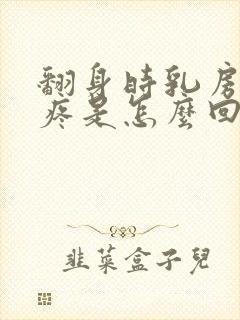 翻身時乳房
疼是怎麼回
韭菜盒子兒